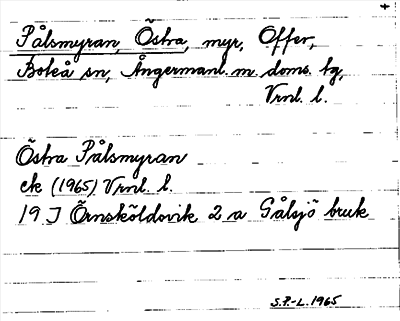 Pålsmyran, Östra, myr, Offer,
Boteå sn, Ångermanl. m. doms. tg,
Vrnl. l.
Östra Pålsmyran
ek (1965) Vrnl. l.
19 J Örnsköldsvik 2 a Gålsjö bruk
S.P.-L. 1965